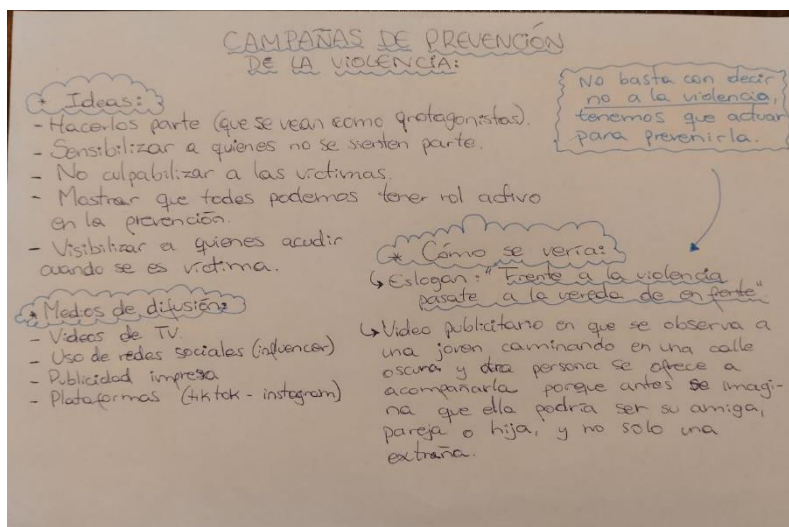 CAMPAÑAS DE PREVENCIÓN
DE LA VIOLENCIA:
* Ideas:
- Hacerlos parte (que se vean como protagonistas).
- Sensibilizar a quienes no se sienten parte.
- No culpabilizar a las víctimas.
- Mostrar que todes podemos tener rol activo
en la prevención.
- Visibilizar a quienes acudir
cuando se es víctima.
* Medios de difusión:
- Videos de TV.
- Uso de redes sociales (influencer)
- Publicidad impresa
- Plataformas (tiktok - instagram)
No basta con decir
no a la violencia,
tenemos que actuar
para prevenirla.
* Cómo se vería:
↳ Eslogan: "Frente a la violencia
pasate a la vereda de en frente"
↳ Video publicitario en que se observa a
una joven caminando en una calle
oscura y otra persona se ofrece a
acompañarla porque antes se imagi-
na que ella podría ser su amiga,
pareja o hija, y no solo una
extraña.